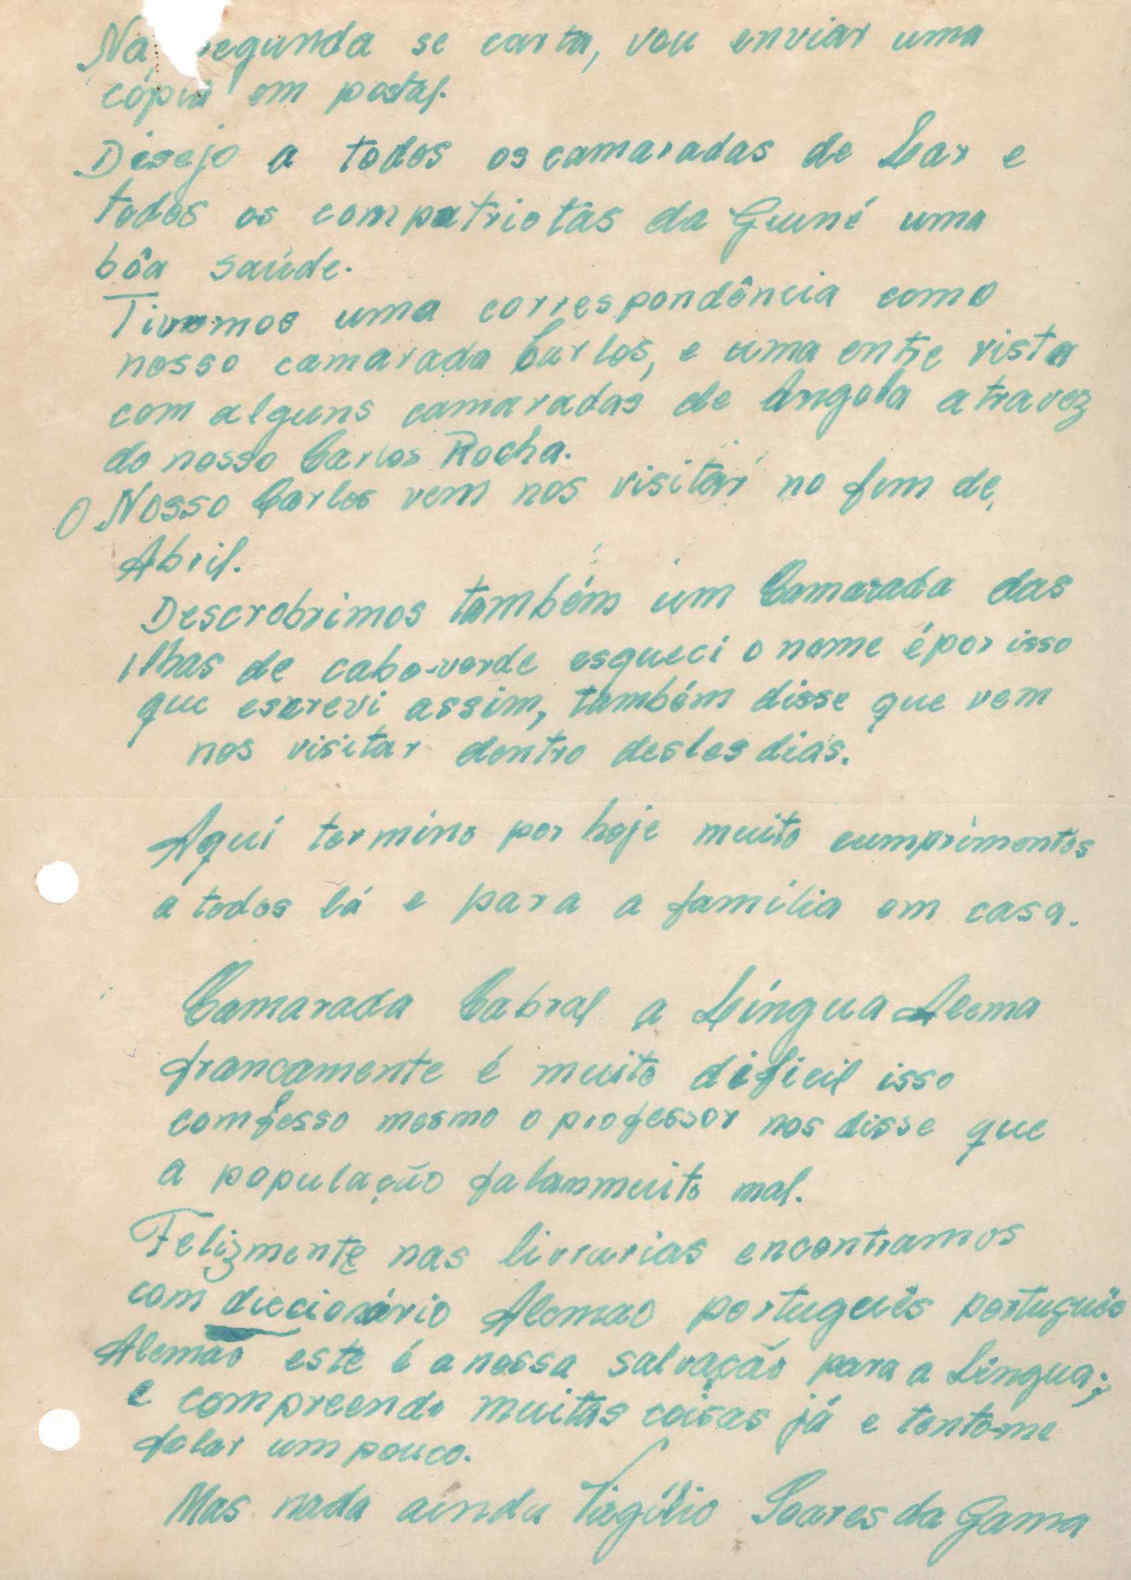 Na segunda se carta, vou enviar uma
cópia em postal.
Disejo a todos os camaradas de Lar e
todos os compatriotas da Guiné uma
bôa saúde.
Tivemos uma correspondência como
nosso camarada Carlos, e uma entre vista
com alguns camaradas de Angola atravez
do nosso Carlos Rocha.
O Nosso Carlos vem nos visitar no fim de
Abril.
Descrobrimos também um Camarada das
Ilhas de cabo-verde esqueci o nome é por isso
que escrevi assim, também disse que vem
nos visitar dentro destes dias.
Aqui termino por hoje muito cumprimentos
a todos lá e para a família em casa.
Camarada Cabral a Língua Alema
francamente é muito dificil isso
comfesso mesmo o professor nos disse que
a população falam muito mal.
Felizmente nas livrarias encontramos
com diccionário Alemao português português
Alemão este é a nossa salvação para a Língua;
e compreendo muitas coisas já e tento-me
falar um pouco.
Mas nada ainda Virgílio Soares da Gama